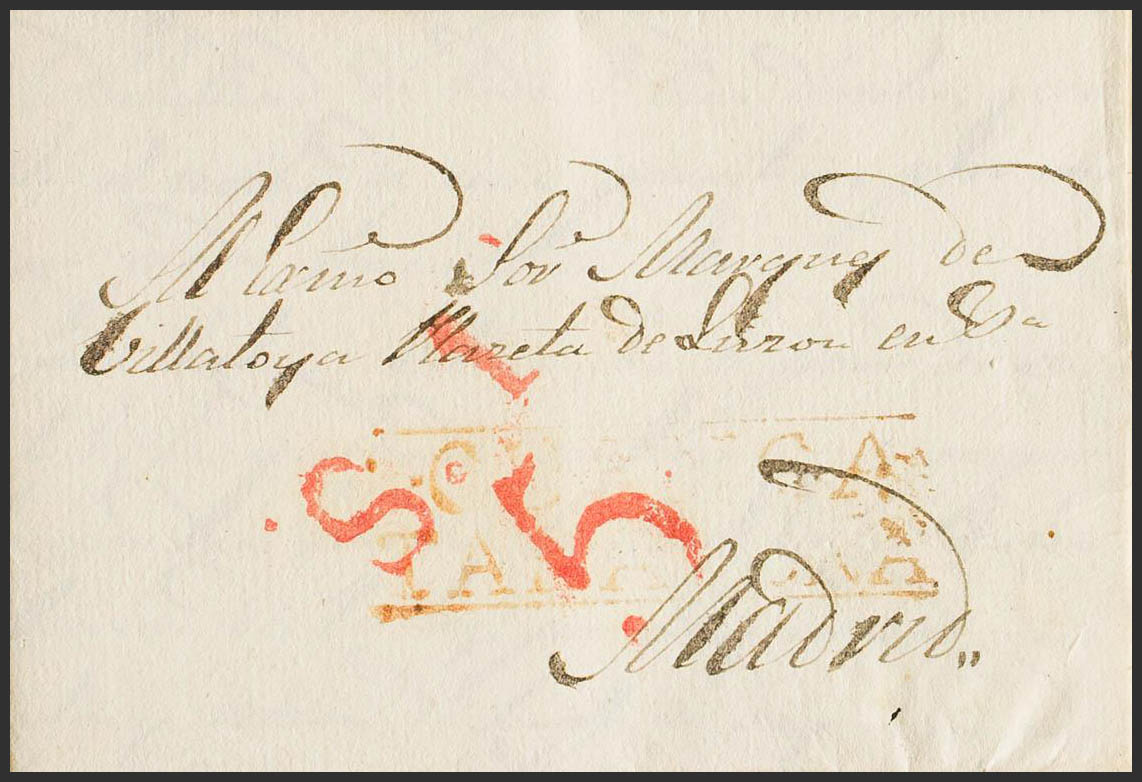 Al Exmo Sor Marques de
Villatoya Plazeta de Luzon en Va
S 5
Madrid